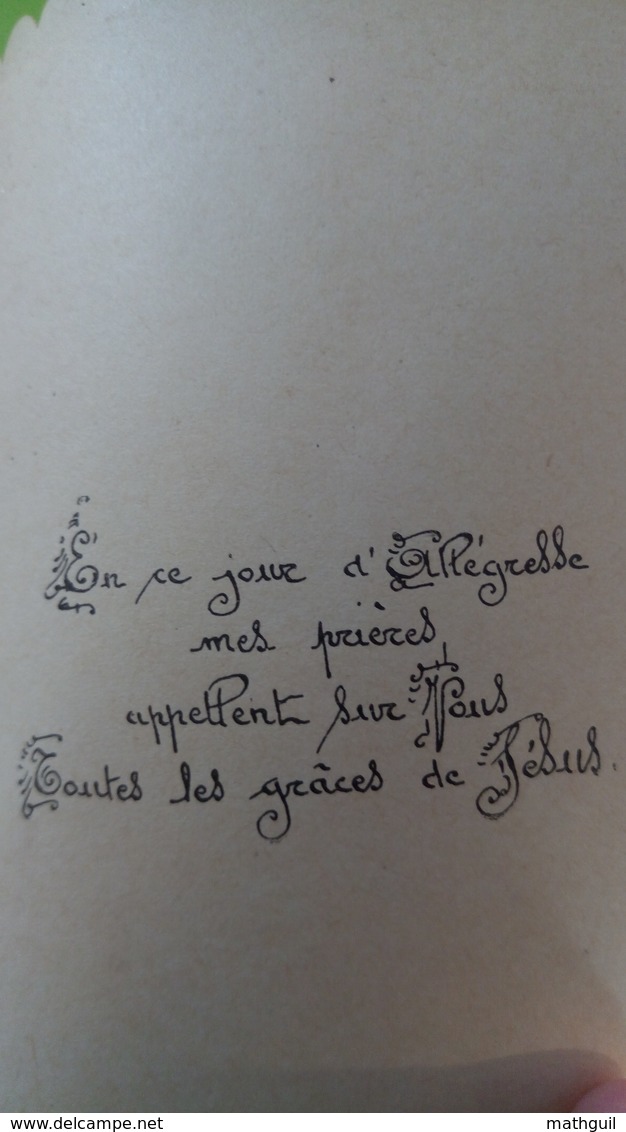 En ce jour d'Allégresse
mes prières
appellent sur Vous
Toutes les grâces de Jésus.
www.delcampe.net
mathguil